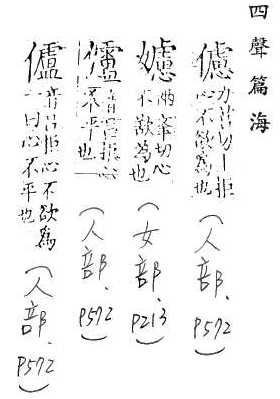 四聲篇海
儢 力莒切丨拒
心不欲為也
(人部、P572)
㜞 兩舉切心
不欲為也
(女部、P213)
音呂拒心
不平也
(人部、P572)
音呂拒心不欲為
一曰心不平也
(人部、P572)